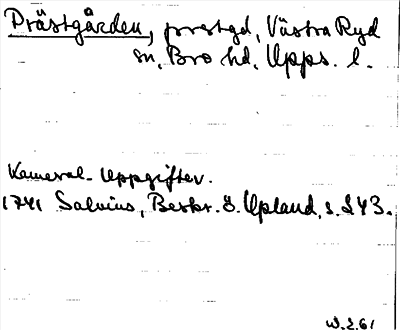 Prästgården, prestgd, Västra Ryd
sn, Bro hd, Upps. l.
Kameral-Uppgifter.
1741 Salvius, Beskr. ö. Upland, s. 243.
W.2.61